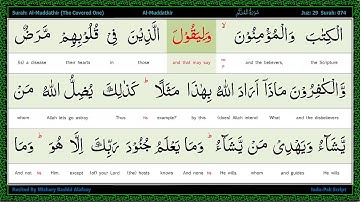 Surah: Al-Muddathir (The Covered One) Al-Muddathir Juz: 29 Surah: 074
الْكِتٰبَ وَالْمُؤْمِنُوْنَ ۙ وَلِيَقُوْلَ الَّذِيْنَ فِيْ قُلُوْبِهِمْ مَّرَضٌ
(is) a disease their hearts in those and that may say and the believers, the Scripture
وَّالْكٰفِرُوْنَ مَاذَاۤ اَرَادَ اللّٰهُ بِهٰذَا مَثَلًا ؕ كَذٰلِكَ يُضِلُّ اللّٰهُ مَنْ
whom Allah lets go astray Thus example? by this (does) Allah intend What and the disbelievers
يَّشَآءُ وَيَهْدِيْ مَنْ يَّشَآءُ ؕ وَمَا يَعْلَمُ جُنُوْدَ رَبِّكَ اِلَّا هُوَ ؕ وَمَا
And not Him. except (of) your Lord (the) hosts knows And none He wills. whom and guides He wills
Recited By Mishary Rashid Alafasy Indo-Pak Script